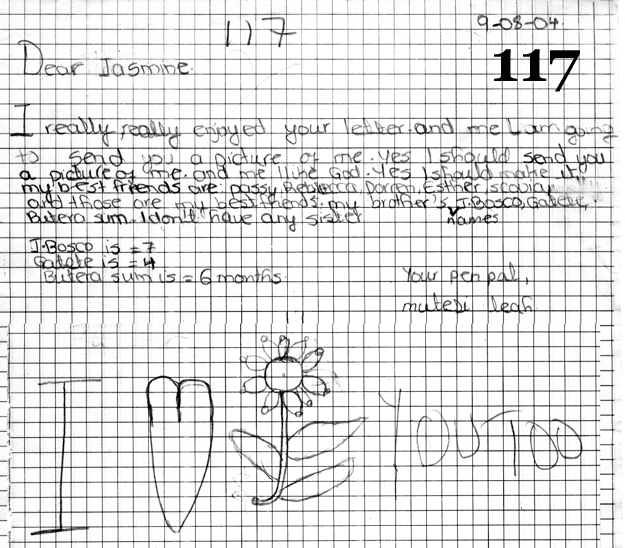 117
9-08-04.
117
Dear Jasmine.
I really really enjoyed your letter. and me I am going
to send you a picture of me. Yes I should send you
a picture of me. and me I like God. Yes I should make it,
my best friends are possy, Darren, Esther,
and those are my best friends. my brother's J.Bosco, Gatete,
names
Butera sum. I don't have any sister
J.Bosco is = 7
Gatete is = 4
Butera sum is = 6 months.
Your pen pal,
mutesi leah
I YOU TOO